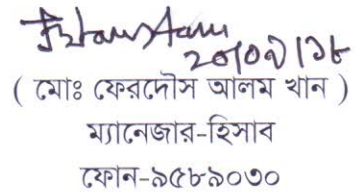 ২০/০৯/১৮
( মোঃ ফেরদৌস আলম খান )
ম্যানেজার-হিসাব
ফোন-৯৫৮৯০৩০